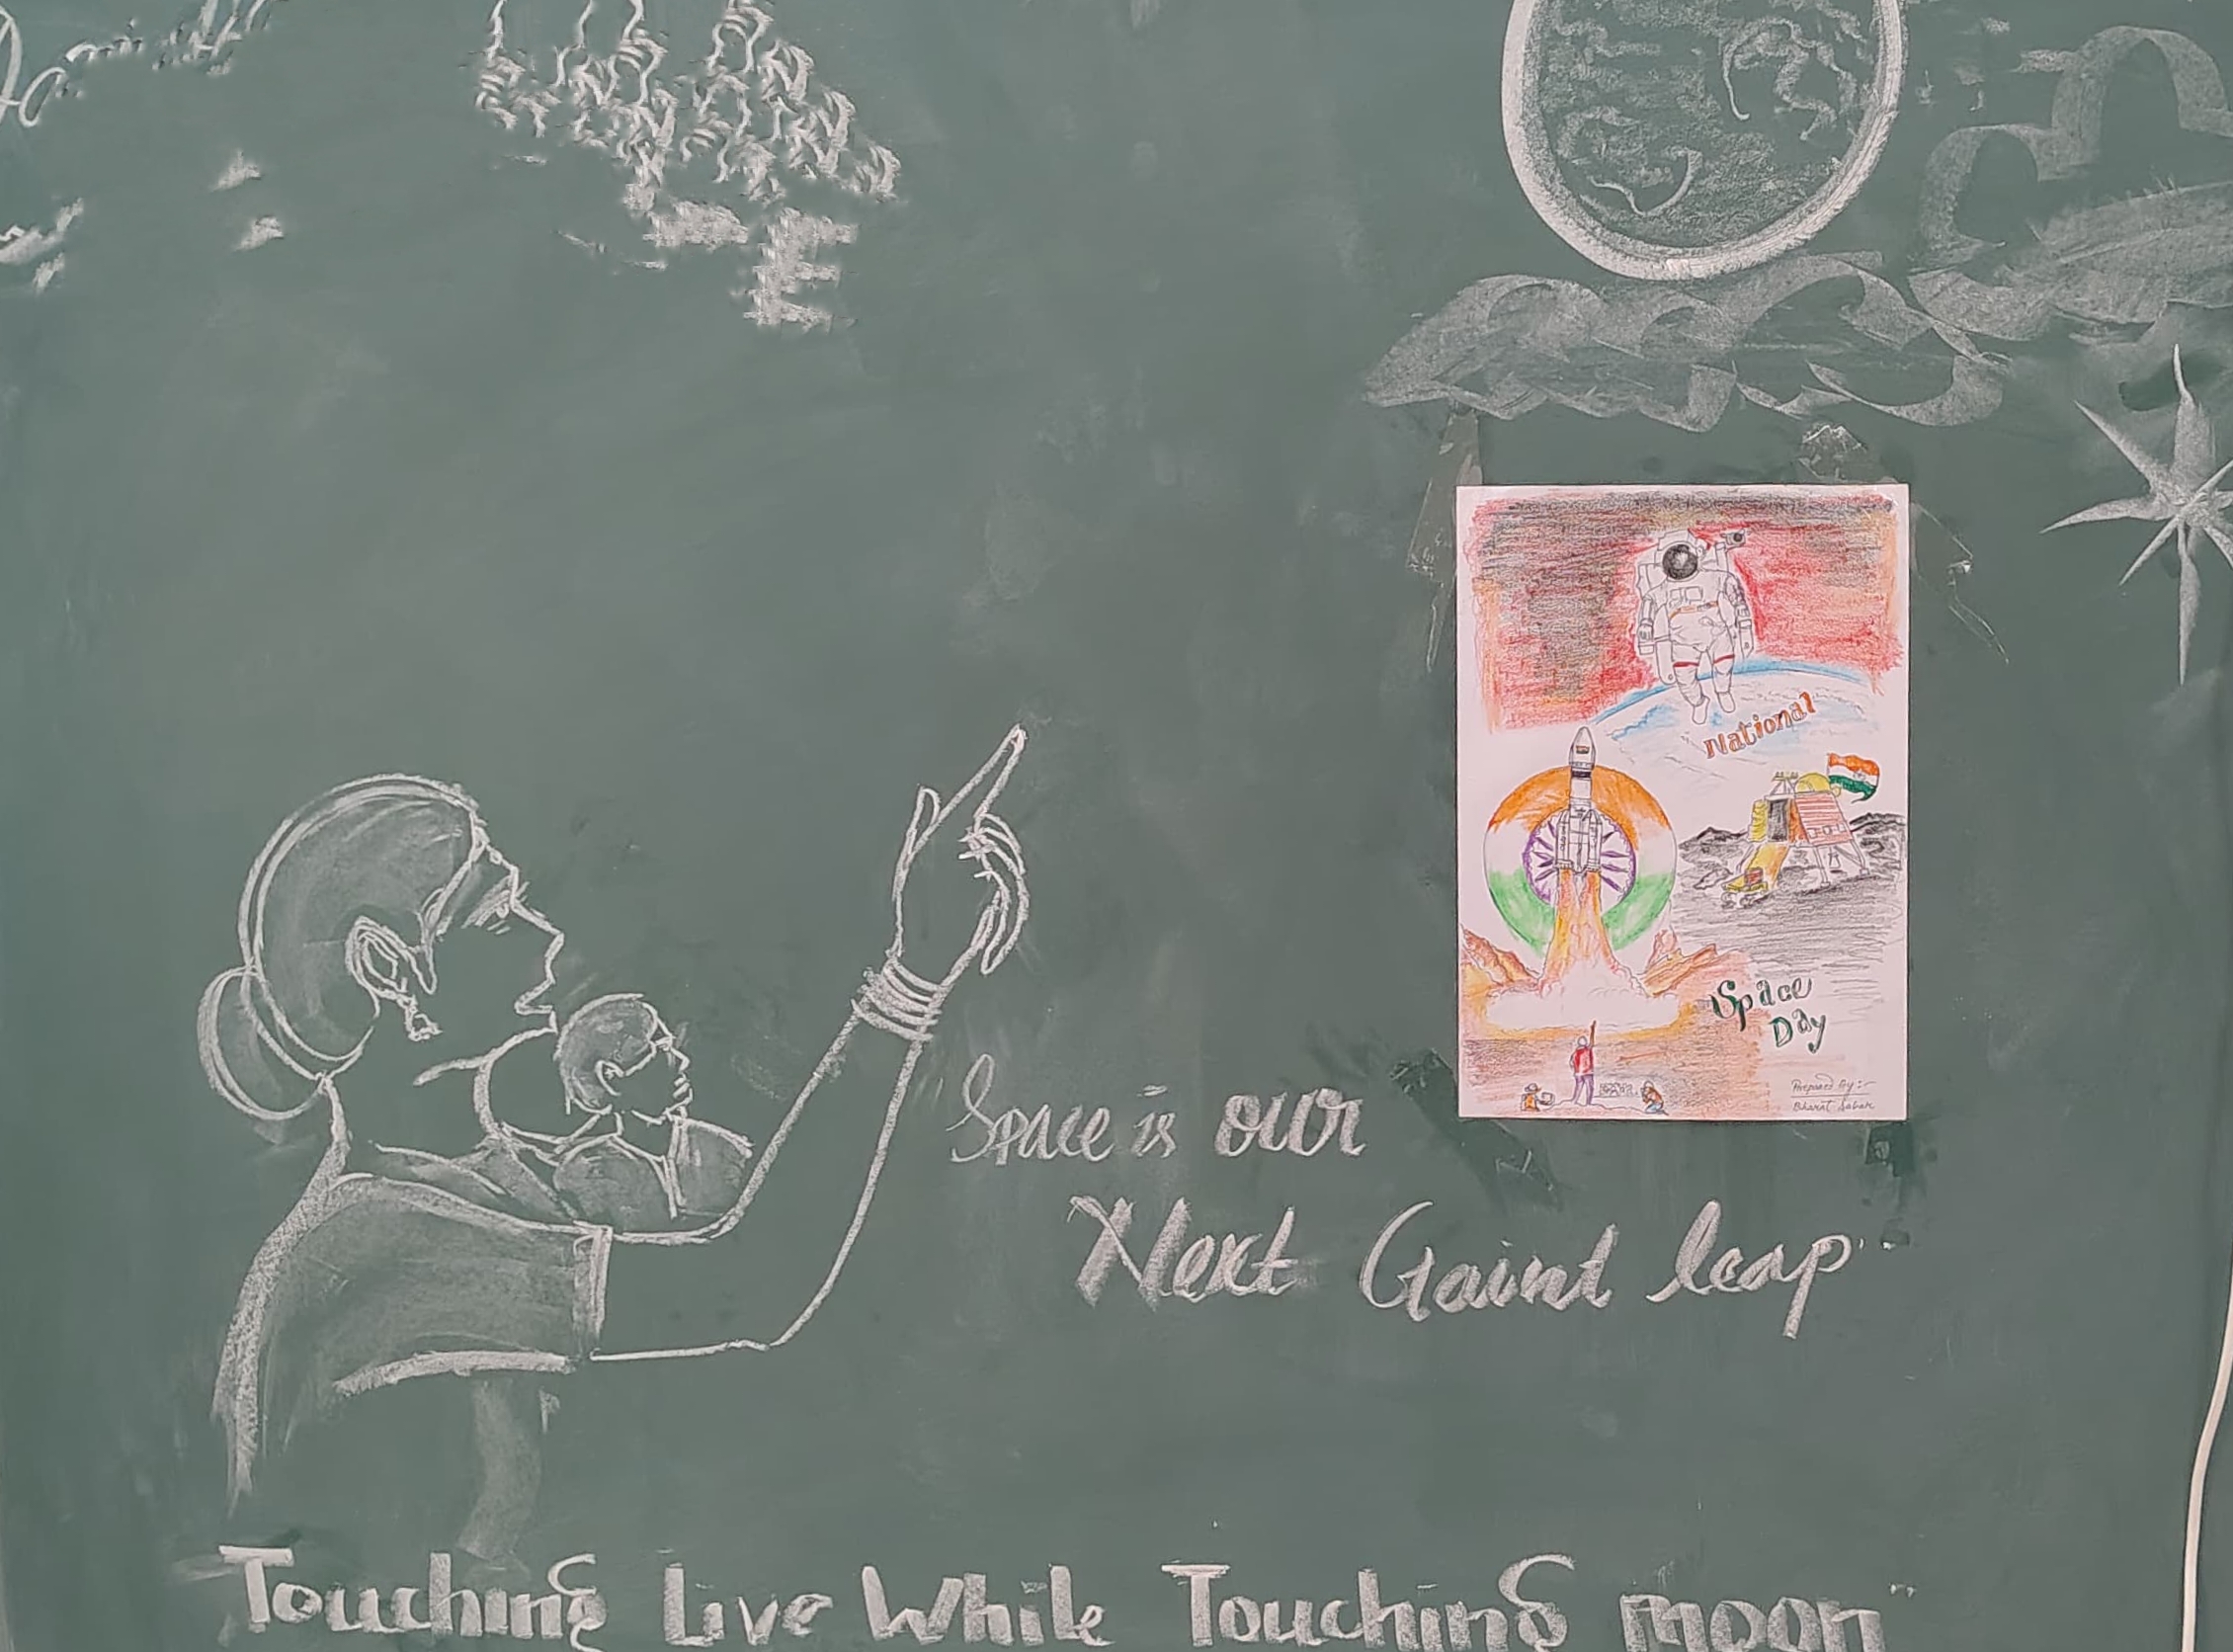 National
Space
Day
Prepared By :-
Bharat Sabar
Space is our
Next Gaint leap"
Touching Live While Touching moon"